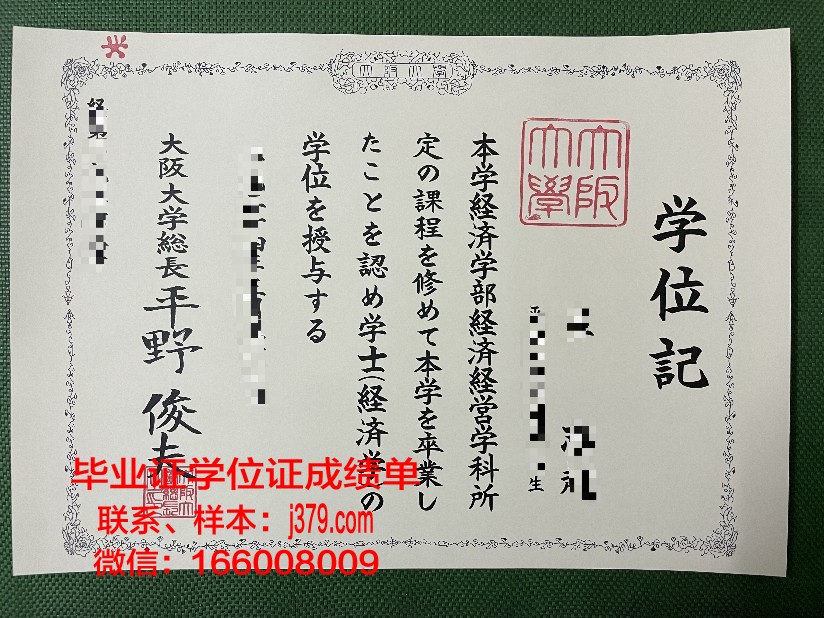 学位記
大阪大學
生
本学経済学部経済経営学科所
定の課程を修めて本学を卒業し
たことを認め学士(経済学)の
学位を授与する
大阪大学総長 平野俊夫
毕业证学位证成绩单
联系、样本：j379.com
微信：166008009